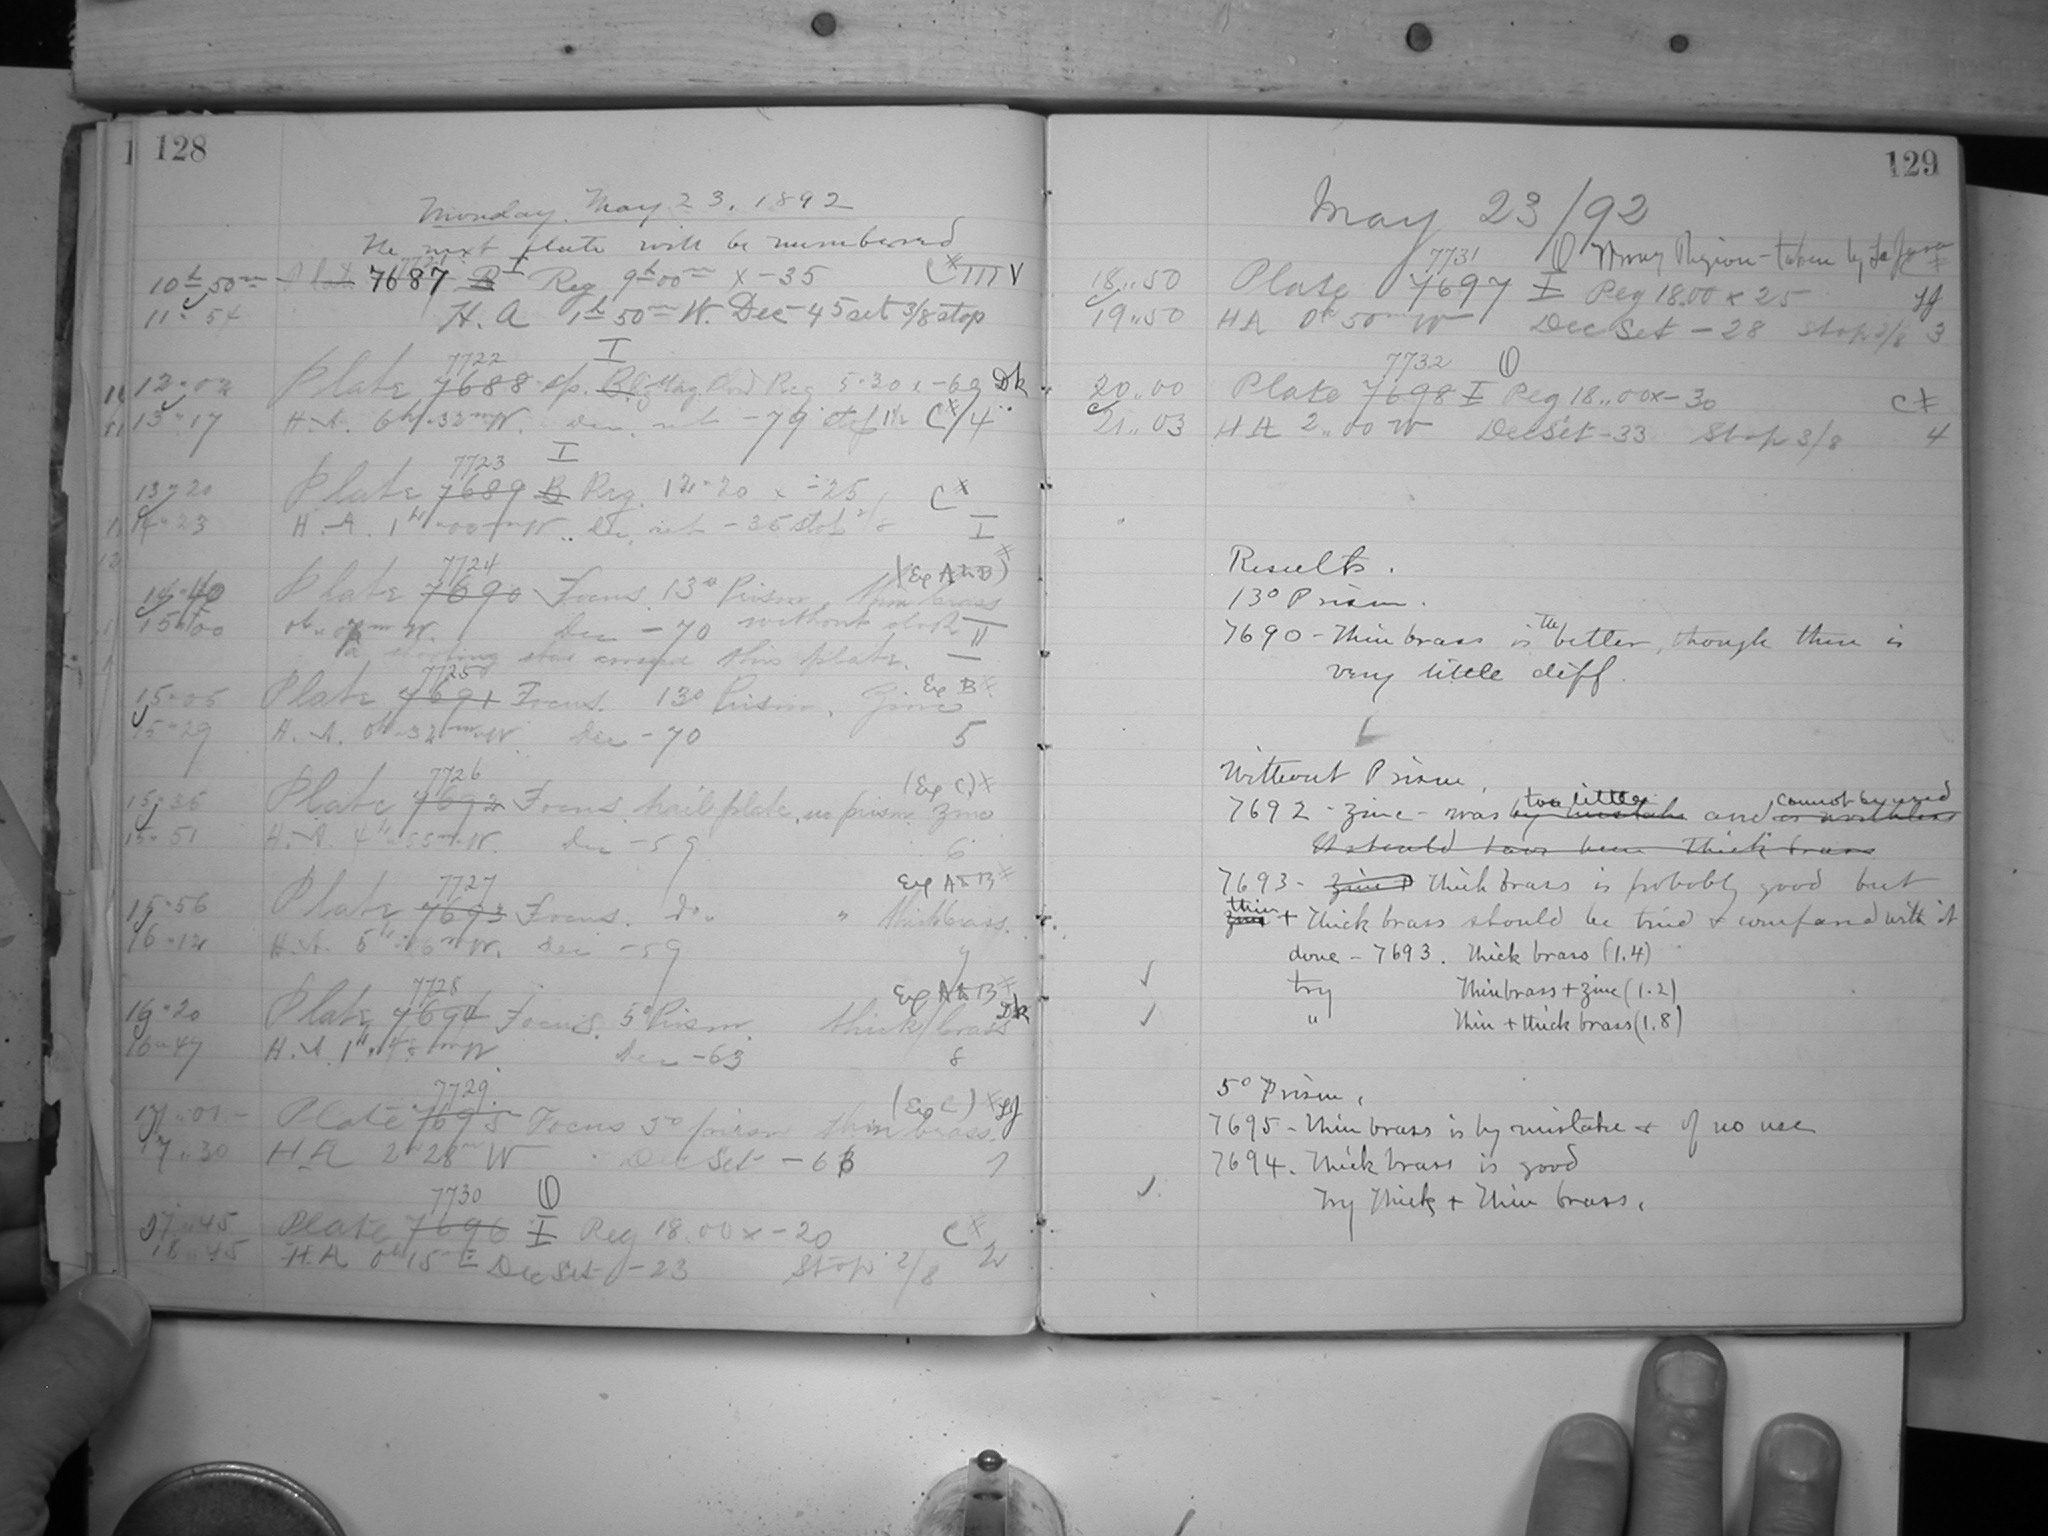 128
Monday. May 23. 1892
The next plate will be numbered
7721 I
10h 50m Plate 7687 B Reg 9h 00m x -35 C* III V
11 54 H.A 1h 50m W. Dec -45 set 3/8 stop
7722 I
12 02 Plate 7688 sp. Reg 5 30 x -69 Dk
13 17 H.A. 6h 32m W. Dec. set -79 C* 4
7723 I
13 20 Plate 7689 B Reg. 12 20 x -25 C*
14 23 H.A. 1h 00m W. Dec. set -35 stop 2/8 I
7724 (Exp A & B)*
14 40 Plate 7690 Focus 13° Prism thin brass
15 00 W. Dec -70 without stop II
a shooting star crossed this plate.
7725 Exp B*
15 05 Plate 7691 Focus. 13° Prism, Zinc
15 29 H.A. 0h 32m W. Dec -70 5
7726 (Exp C)*
15 35 Plate 7692 Focus, trail plate, no prism zinc
15 51 H.A. 4h 55m W. Dec -59 6
7727 Exp A & B*
15 56 Plate 7693 Focus. do. " thick brass.
16 12 H.A. 5h 16m W. Dec -59 7
7728 Exp A & B*
16 20 Plate 7694 Focus. 5° Prism thick brass Dk
16 47 H.A. 1h 48m W Dec -63 8
7729 (Exp C)* LJ
17 01 Plate 7695 Focus 5° prism thin brass.
17 30 HA 2h 28m W Dec Set -63 1
7730
17 45 Plate 7696 I Reg 18.00 x -20 C*
18 45 H.A 0h 15m E Dec Set -23 Stop 2/8 2
129
May 23/92
7731 Milky Region - taken by
18 50 Plate 7697 I Reg 18.00 x 25 C* LJ
19 50 HA 0h 50m W Dec Set -28 Stop 2/8 3
7732
20 00 Plate 7698 I Reg 18 00 x -30 C*
21 03 HA 2 00 W Dec Set -33 Stop 3/8 4
Results.
13° Prism.
7690 - Thin brass is the better, though there is
very little diff.
Without Prism.
7692 - Zinc - was by mistake too little and is worthless cannot be used
It should have been Thick brass
7693 - Zinc + Thick brass is probably good but
zinc thin + Thick brass should be tried & compared with it
done - 7693. Thick brass (1.4)
try Thin brass + zinc (1.2)
" Thin + thick brass (1.8)
5° Prism.
7695 - Thin brass is by mistake & of no use
7694. Thick brass is good
Try Thick + Thin brass.